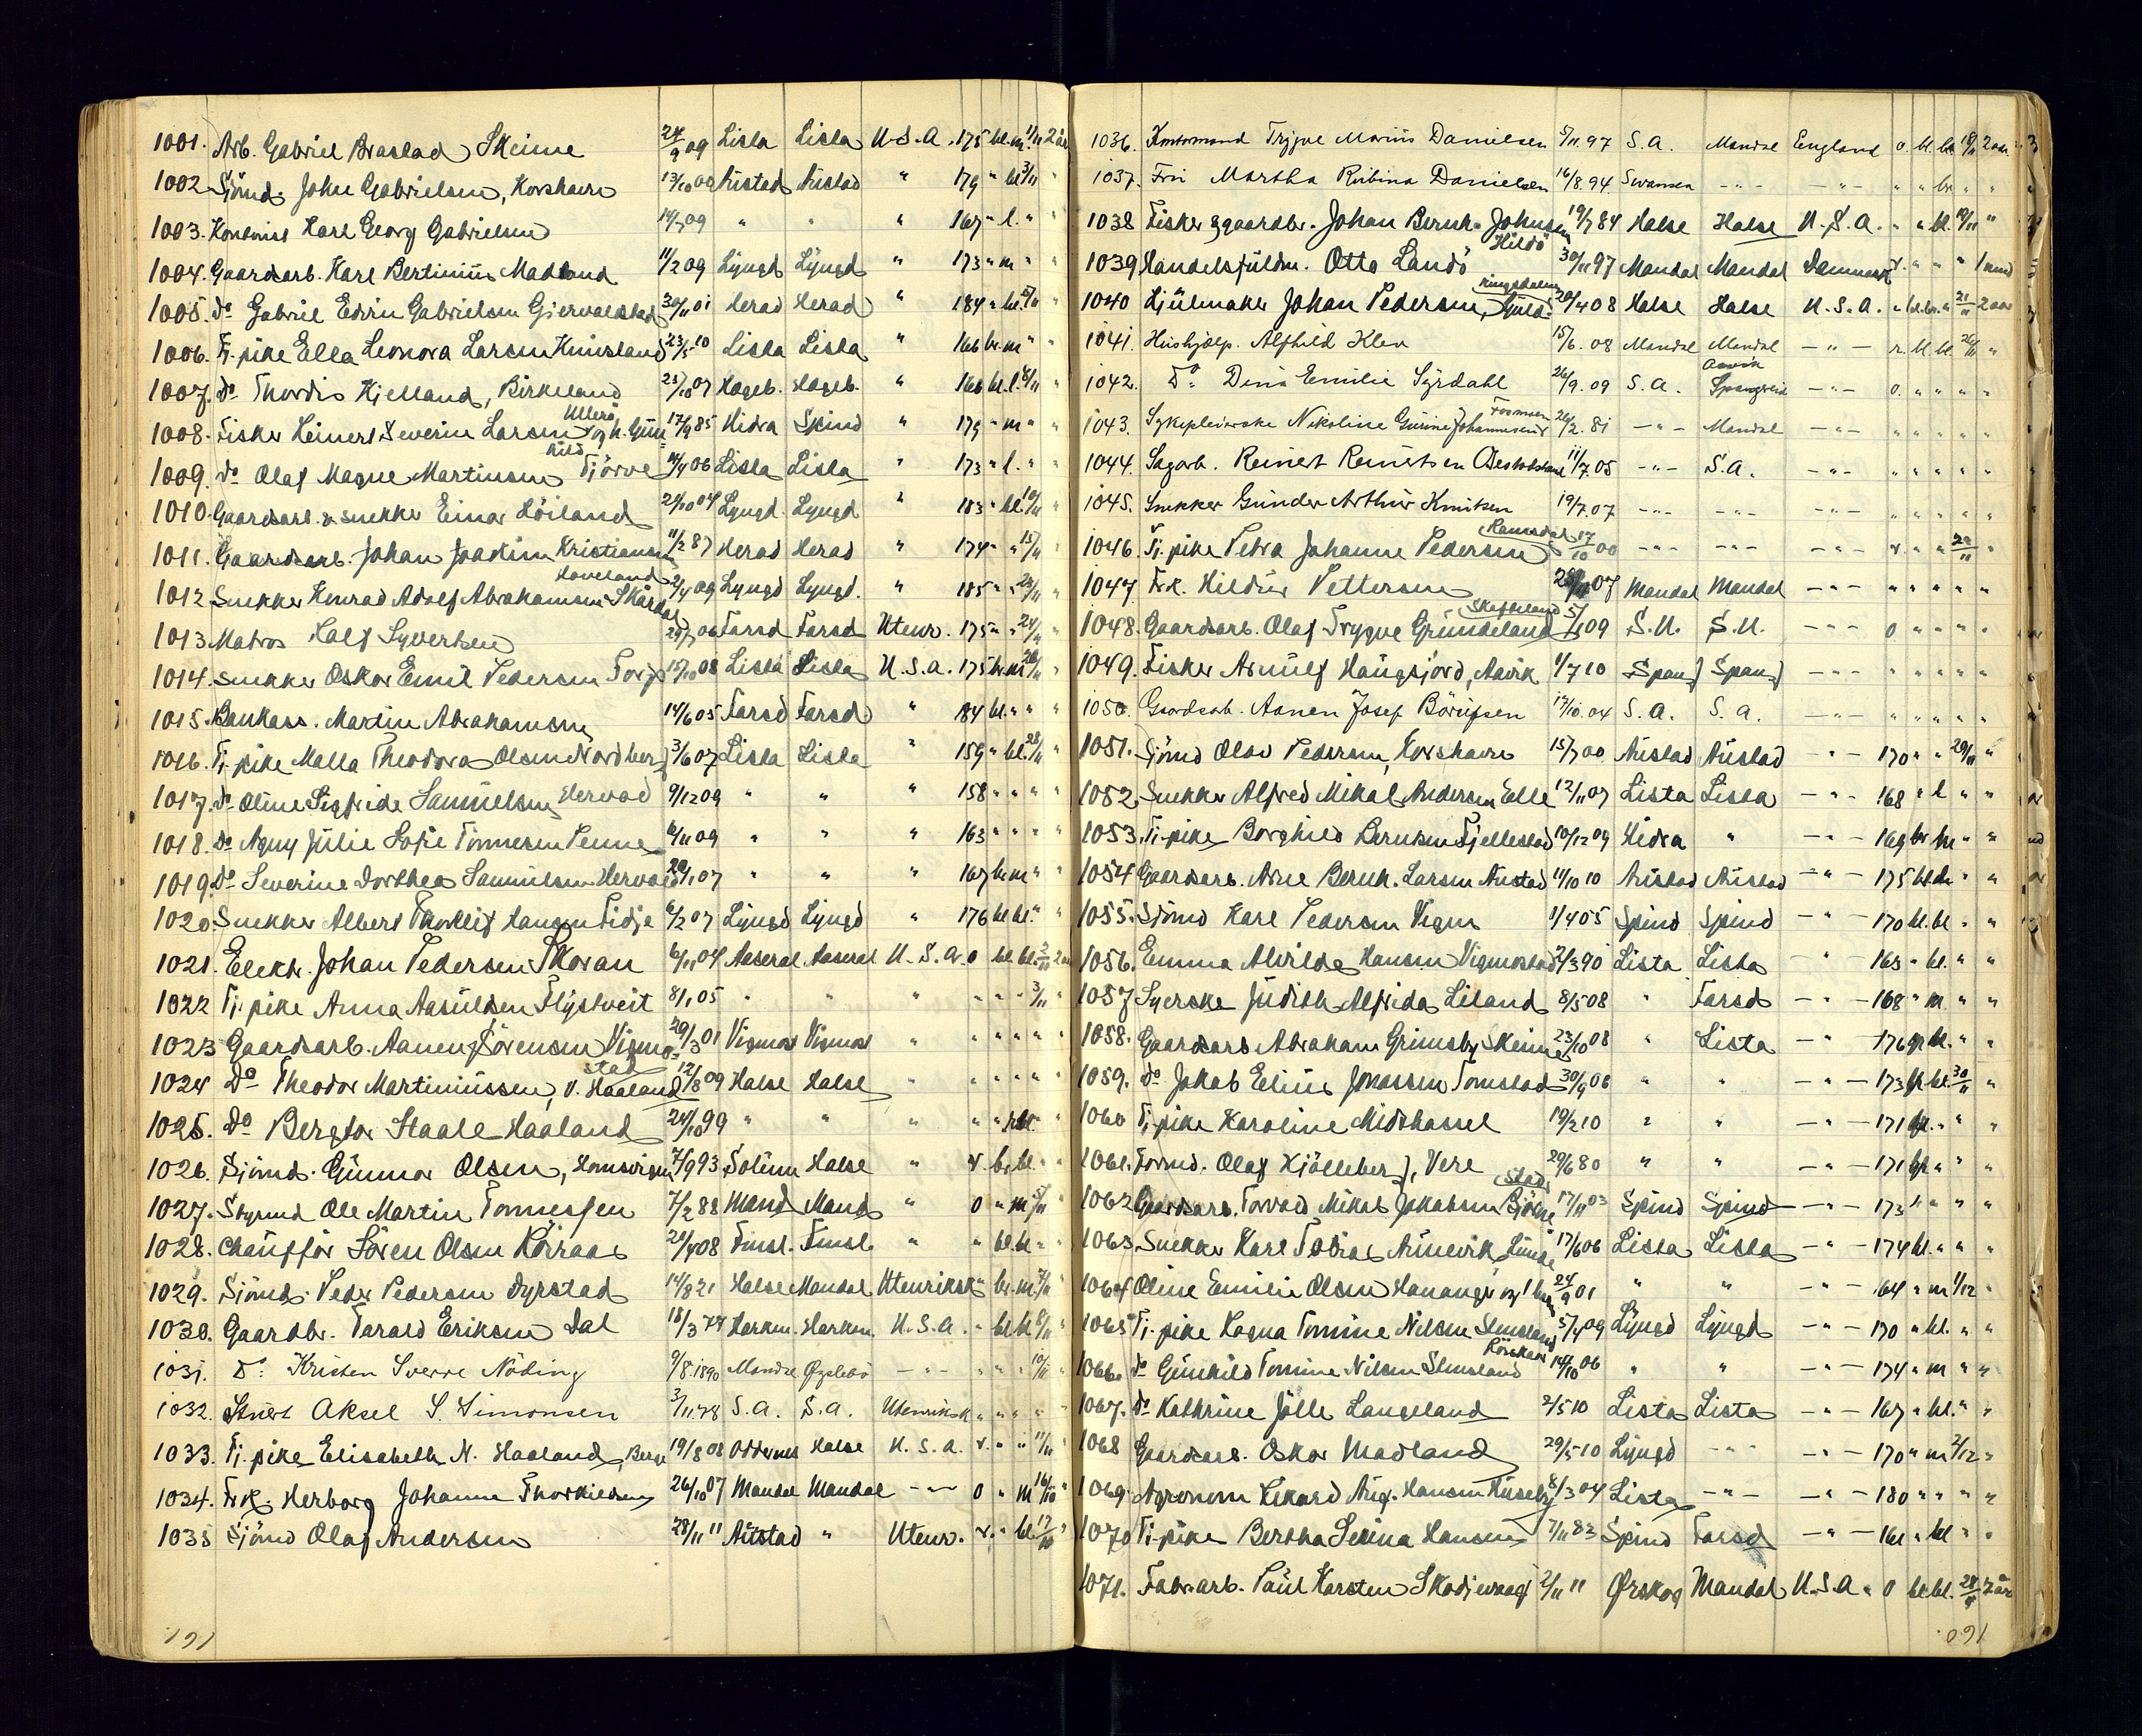 1001. Arb. Gabriel Brastad Skeime 24/9 09 Lista Lista U.S.A. 175 bl. m. 1/11 2 år
1002 Sjömd. John Gabrielsen, Korshavn 13/10 00 Austad Austad " 179 " bl. 3/11 "
1003. Kontorist Karl Georg Gabrielsen 14/7 09 " " " 167 " l. " "
1004. Gaardsarb. Karl Bertinius Madland 11/2 09 Lyngd Lyngd " 173 " m " "
1005. Do Gabriel Edvin Gabrielsen Gjervoldstad 30/11 01 Herad Herad " 184 " bl. 5/11 "
1006. Tj. pike Ella Leonora Larsen 23/5 10 Lista Lista " 166 br. m " "
1007. Do Thordis Kjelland, Birkeland 23/10 07 Hægeb. Hægeb. " 166 bl. l. 8/11 "
1008. Fisker Leinert Severin Larsen Ullerö og h. Gunhild 17/9 85 Hidra Spind " 179 " m " "
1009. Do Olaf Magne Martinsen Tjörve 14/4 06 Lista Lista " 173 " l. " "
1010. Gaardsarb. & snekker Einar Löiland 21/10 04 Lyngd. Lyngd " 183 " bl. 10/11 "
1011. Gaardsarb. Johan Joakim Kristiansen Hoveland 11/2 87 Herad Herad " 174 " " 15/11 "
1012 Snekker Konrad Adolf Abrahamsen Skärdal 2/4 09 Lyngd Lyngd. " 185 " " 23/11 "
1013. Matros Half Syvertsen 29/7 06 Farsd Farsd Utenr. 175 " " 24/11 "
1014. Snekker Oskar Emil Pedersen Torp 15/10 08 Lista Lista U.S.A. 175 br. m 26/11 "
1015. Bankass. Martin Abrahamsen 14/6 05 Farsd Farsd " 184 bl. " " "
1016. Tj. pike Malla Theodora Olsen Nordberg 3/6 07 Lista Lista " 159 " bl. 28/11 "
1017. Do Oline Sigfride Samuelsen Hervold 9/12 09 " " " 158 " " " "
1018. Do Agny Julie Sofie Tönnesen Penne 6/11 09 " " " 163 " " " "
1019. Do Severine Dorthea Samuelsen Hervold 20/1 07 " " " 167 br. m " "
1020. Snekker Albert Thorleif Hansen Fidje 6/2 07 Lyngd Lyngd " 176 bl. bl. " "
1021. Elektr. Johan Pedersen Skoran 6/11 04 Aaseral Aaseral U.S.A. o bl. bl. 2/11 2 aar
1022 Tj. pike Anna Aasulsen Flystveit 8/1 05 " " " " " " 3/11 "
1023 Gaardsarb. Aanen Sörensen Vigmostad 29/3 01 Vigmost Vigmost " " " " " "
1024 Do Theodor Martiniussen, V. Haaland 12/8 09 Halse Halse " " " " " "
1025. Do Bergtor Staale Haaland 24/10 99 " " " " "
1026. Sjömd. Gunnar Olsen, 7/9 93 Solum Halse " v. br. bl. " "
1027. Styrmd Ole Martin Tönnessen 7/2 88 Mand Mand " o " m 5/11 "
1028. Chaufför Sören Olsen Röiraas 21/4 08 Finsl. Finsl. " " bl. bl. " "
1029. Sjömd. Peder Pedersen Dyrstad 14/8 21 Halse Mandal Utenriksk " br. m. 7/11 "
1030. Gaardbr. Tarald Eriksen Dal 18/3 74 Harkm. Harkm. U.S.A. " bl. bl. 8/11 "
1031. Do Kristen Sverre Nöding 9/8 1890 Mandal Øyslebö — " — " " " 10/11 "
1032. Stuert Aksel S. Simonsen 3/11 78 S.A. S.A. Utenriksk. " " " "
1033. Tj. pike Elisabeth N. Haaland, Berge 19/8 08 Oddernes Halse U.S.A. v. " " 11/11 "
1034. Frk. Herborg Johanne Thorkildsen 26/10 07 Mandal Mandal — " — o " m 16/10 "
1035 Sjömd Olaf Andersen 28/11 11 Austad " Utenr. v. " bl. 17/10 "
191
1036. Kontormand Trygve Marius Danielsen 5/11 97 S.A. Mandal England o. bl. bl. 18/11 2 aar
1037. Fru Martha Rubina Danielsen 16/8 94 Swansea — " — — " — " " br. " "
1038 Fisker & gaardbr. Johan Bernh. Johnsen Hildö 19/7 84 Halse Halse U.S.A. " " bl. 19/11 "
1039 Handelsfuldm. Otto Landö 30/11 97 Mandal Mandal Danmark v. " " " 1 mnd
1040 Hjulmaker Johan Pedersen, Ringsdalen 20/4 08 Halse Halse U.S.A. " bl. br. " 21/11 2 aar
1041. Hushjælp. Alfhild Klev 15/6. 08 Mandal Mandal — " — v. bl. bl. 26/11 "
1042. Do Dina Emilie Syrdahl 26/9. 09 S.A. Aavik Spangreid — " — o. " " " "
1043. Sykepleierske Nikoline Gurine Johannesen Fosnesen 26/2. 81 — " — Mandal — " — " " " " "
1044. Sagarb. Reinert Reinertsen 11/7. 05 — " — S.A. — " — " " " " "
1045. Snekker Gunder Arthur Knutsen 19/7. 07 — " — — " — — " — " " " " "
1046. Tj. pike Petra Johanne Pedersen Ramsdal 17/10 00 — " — — " — — " — v. " " 22/11 "
1047 Frk. Hildur Pettersen 07 Mandal Mandal — " — " " " " "
1048. Gaardsarb. Olaf Trygve Grundeland Skofteland 5/5 09 S.U. S.U. — " — o " " " "
1049. Fisker Arnulf Haugfjord, Aavik 1/7 10 Spang Spang — " — " " " " "
1050. Gaardsarb. Aanen Josef Börufsen 12/10. 04 S.A. S.A. — " — " " " " "
1051. Sjömd Olav Pedersen, Korshavn 15/7 00 Austad Austad — " — 170 " " 29/11 "
1052. Snekker Alfred Mikal Andersen Elle 12/11 07 Lista Lista — " — 168 " l " "
1053. Tj. pike Borghild Berntsen Fjellestad 10/12 09 Hidra " — " — 169 br m " "
1054 Gaardsarb. Arne Bernh. Larsen Austad 11/10 10 Austad Austad — " — 175 bl. bl. " "
1055. Sjömd Karl Pedersen Vigen 1/4 05 Spind Spind — " — 170 bl. bl. " "
1056. Emma Alvilde Hansen Vigmostad 2/3 90 Lista Lista — " — 163 " bl. " "
1057 Syerske Judith Alfrida Liland 8/5 08 " Farsd — " — 168 " m " "
1058. Gaardsarb Abraham Grimsby Skeime 23/10 08 " Lista — " — 176 gr. bl. " "
1059. Do Jakob Elius Jonassen Tomstad 30/9 06 " " — " — 173 bl. bl. 30/11 "
1060 Tj. pike Karoline Midthassel 19/2 10 " " — " — 171 bl. " " "
1061. Formd. Olaf Kjölleberg, Vere 29/6 80 " " — " — 171 " " "
1062 Gaardsarb. Torvald Mikal Jakobsen 17/11 03 Spind Spind — " — 173 " " " "
1063. Snekker Karl Tobias Aunevik Lunde 17/6 06 Lista Lista — " — 174 bl. " " "
1064 Oline Emilie Olsen Hananger og 1 barn 24/9 01 " " — " — 164 " m 1/12 "
1065 Tj. pike Hagna Tomine Nilsen Slimsland 5/4 09 Lyngd Lyngd — " — 170 " bl. " "
1066. Do Gunhild Tomine Nilsen Slimsland 14/10 06 " " — " — 174 " m " "
1067. Do Kathrine Jölle Langeland 2/5 10 Lista Lista — " — 167 " bl. " "
1068 Gaardsarb. Oskar Madland 29/5 10 Lyngd — " — — " — 170 " m 2/12 "
1069. Agronom Rikard Aug. Hansen Huseby 8/3 04 Lista — " — — " — 180 " " " "
1070 Tj. pike Bertha Serina Hansen 7/11 83 Spind Farsd — " — 161 " bl " "
1071. Fabr. arb. Paul Karsten Skodjevaag 2/11 11 Ørskog Mandal U.S.A. o bl. bl. 28/9 2 år
160.